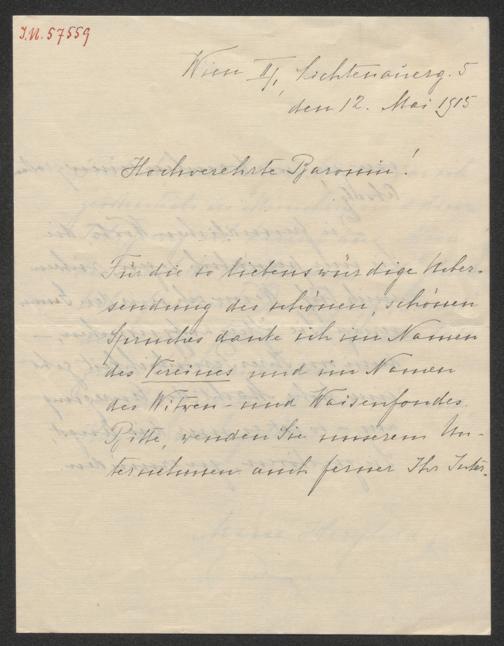 I.N. 57559
Wien II/1 Lichtenauerg. 5
den 12. Mai 1915
Hochverehrte Baronin!
Für die so liebenswürdige Ueber-
sendung des schönen, schönen
Spruches danke ich im Namen
des Vereines und im Namen
des Witwen- und Waisenfondes.
Bitte, wenden Sie unserem Un-
ternehmen auch ferner Ihr Inter-